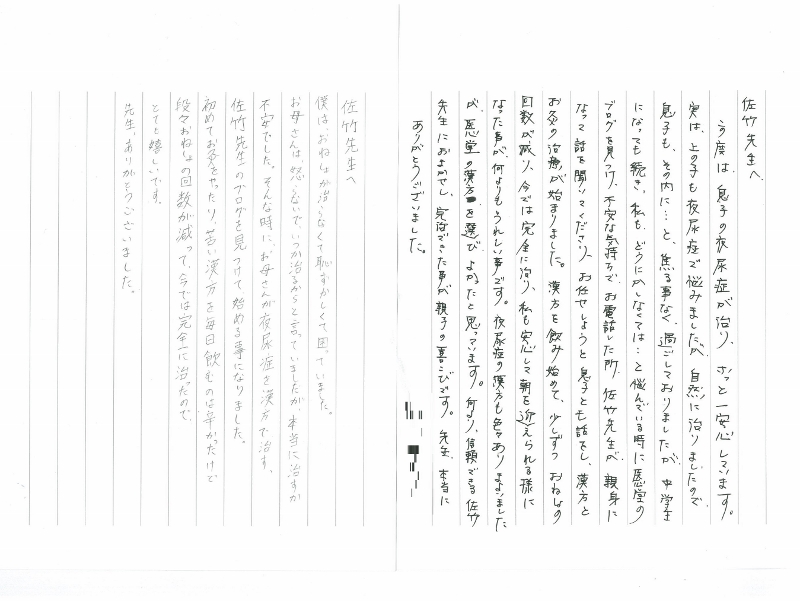 佐竹先生へ
この度は、息子の夜尿症が治り、ホッと一安心しています。
実は、上の子も夜尿症で悩みましたが、自然に治りましたので
息子も、その内に…と、焦る事なく、過ごしておりましたが、中学生
になっても続き、私も、どうにかしなくては…と悩んでいる時に
ブログを見つけ、不安な気持ちで、お電話した所、佐竹先生が、親身に
なって話を聞いてくださり、お任せしようと息子とも話をし、漢方と
お灸の治療が始まりました。漢方を飲み始めて、少しずつ、おねしょの
回数が減り、今では完全に治り、私も安心して朝を迎えられる様に
なった事が、何よりもうれしい事です。夜尿症の漢方も色々ありますました
が、の漢方を選び、よかったと思っています。何より、信頼できる佐竹
先生におまかせし、完治できた事が親子の喜びです。先生、本当に
ありがとうございました。
佐竹先生へ
僕は、おねしょが治らなくて恥ずかしくて困っていました。
お母さんは、怒らないで、いつか治るからと言っていましたが、本当に治すか
不安でした。そんな時に、お母さんが夜尿症を漢方で治す、
佐竹先生のブログを見つけて、始める事になりました。
初めてお灸をやったり、苦い漢方を毎日飲むのは辛かったけど
段々おねしょの回数が減って、今では完全に治ったので、
とても嬉しいです。
先生、ありがとうございました。